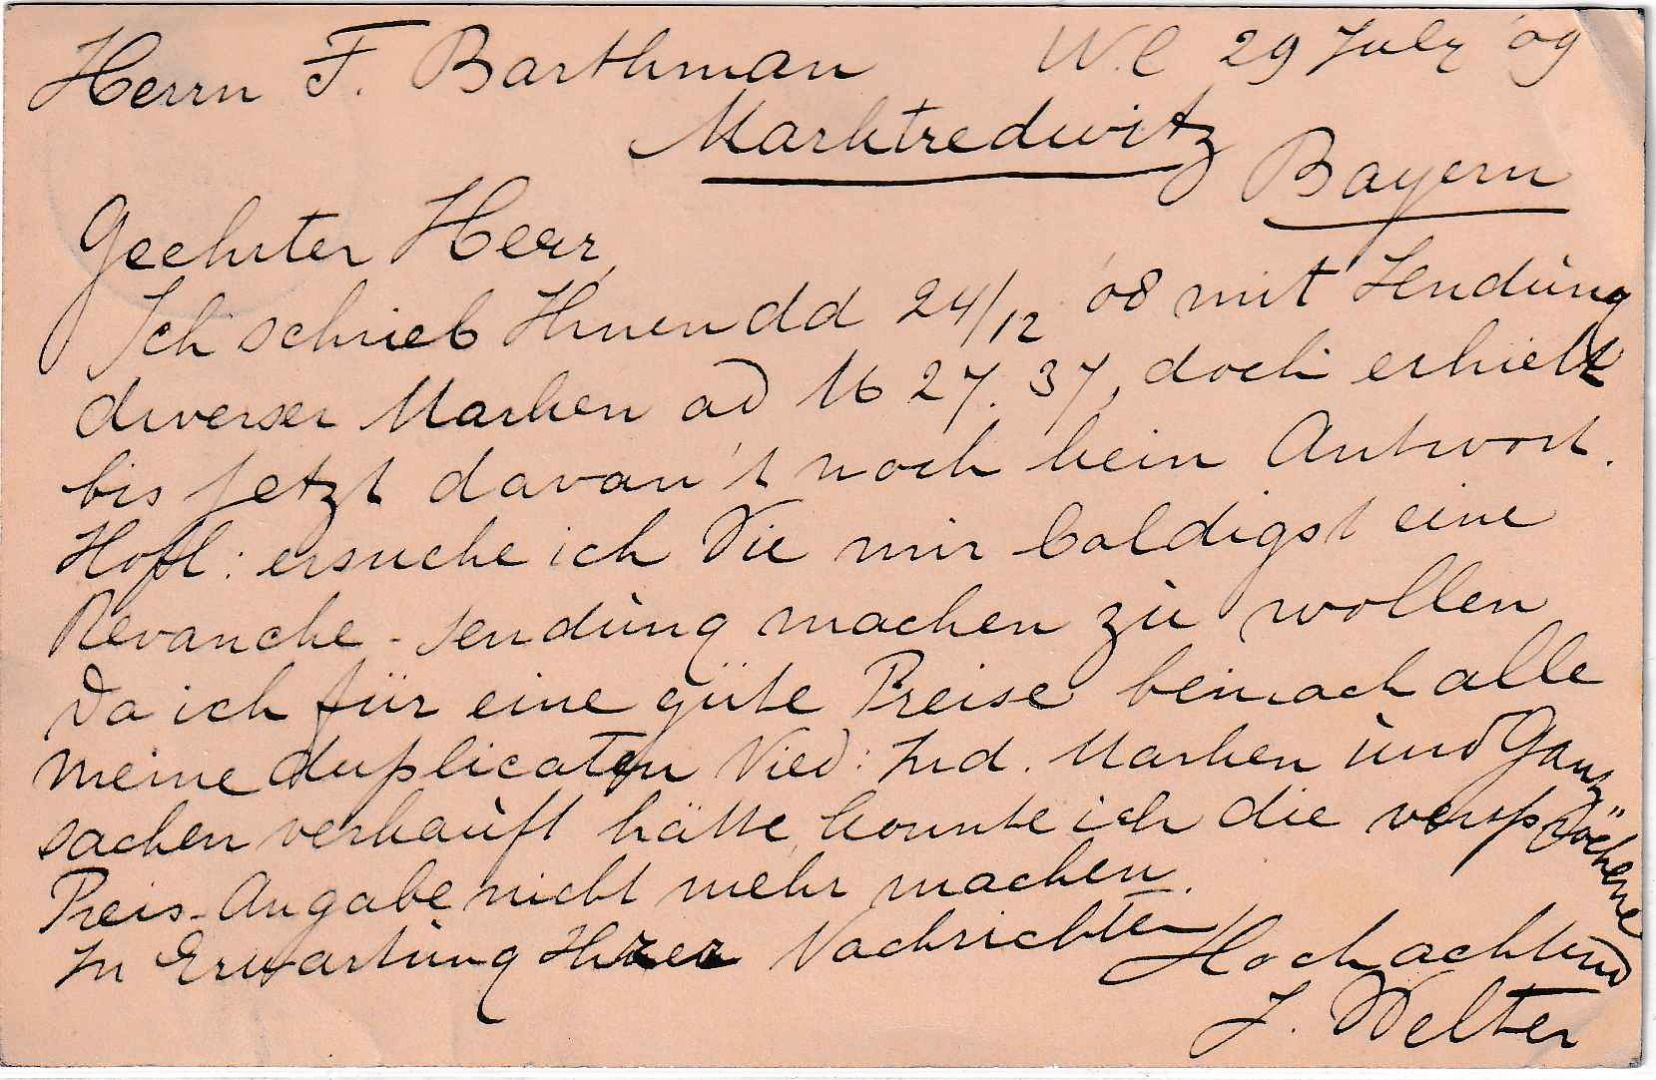 Herrn F. Barthman W.C 29 July '09
Marktredwitz
Bayern
Geehrter Herr,
Ich schrieb Ihnen dd 24/12 '08 mit Sendùng
diverser Marken ad M 27.37, doch erhielt
bis jetzt davan't noch kein Antwort.
Hofl: ersuche ich Sie mir baldigst eine
Revanche-sendùng machen zù wollen
Da ich für eine güte Preise beinach alle
meine duplicaten Nied: Ind. Marken ùnd Ganz
sachen verkaùft hätte, konnte ich die versprochene
Preis-Angabe nicht mehr machen.
In Erwartùng Ihrer Nachrichten
Hochachtend
J. Welter